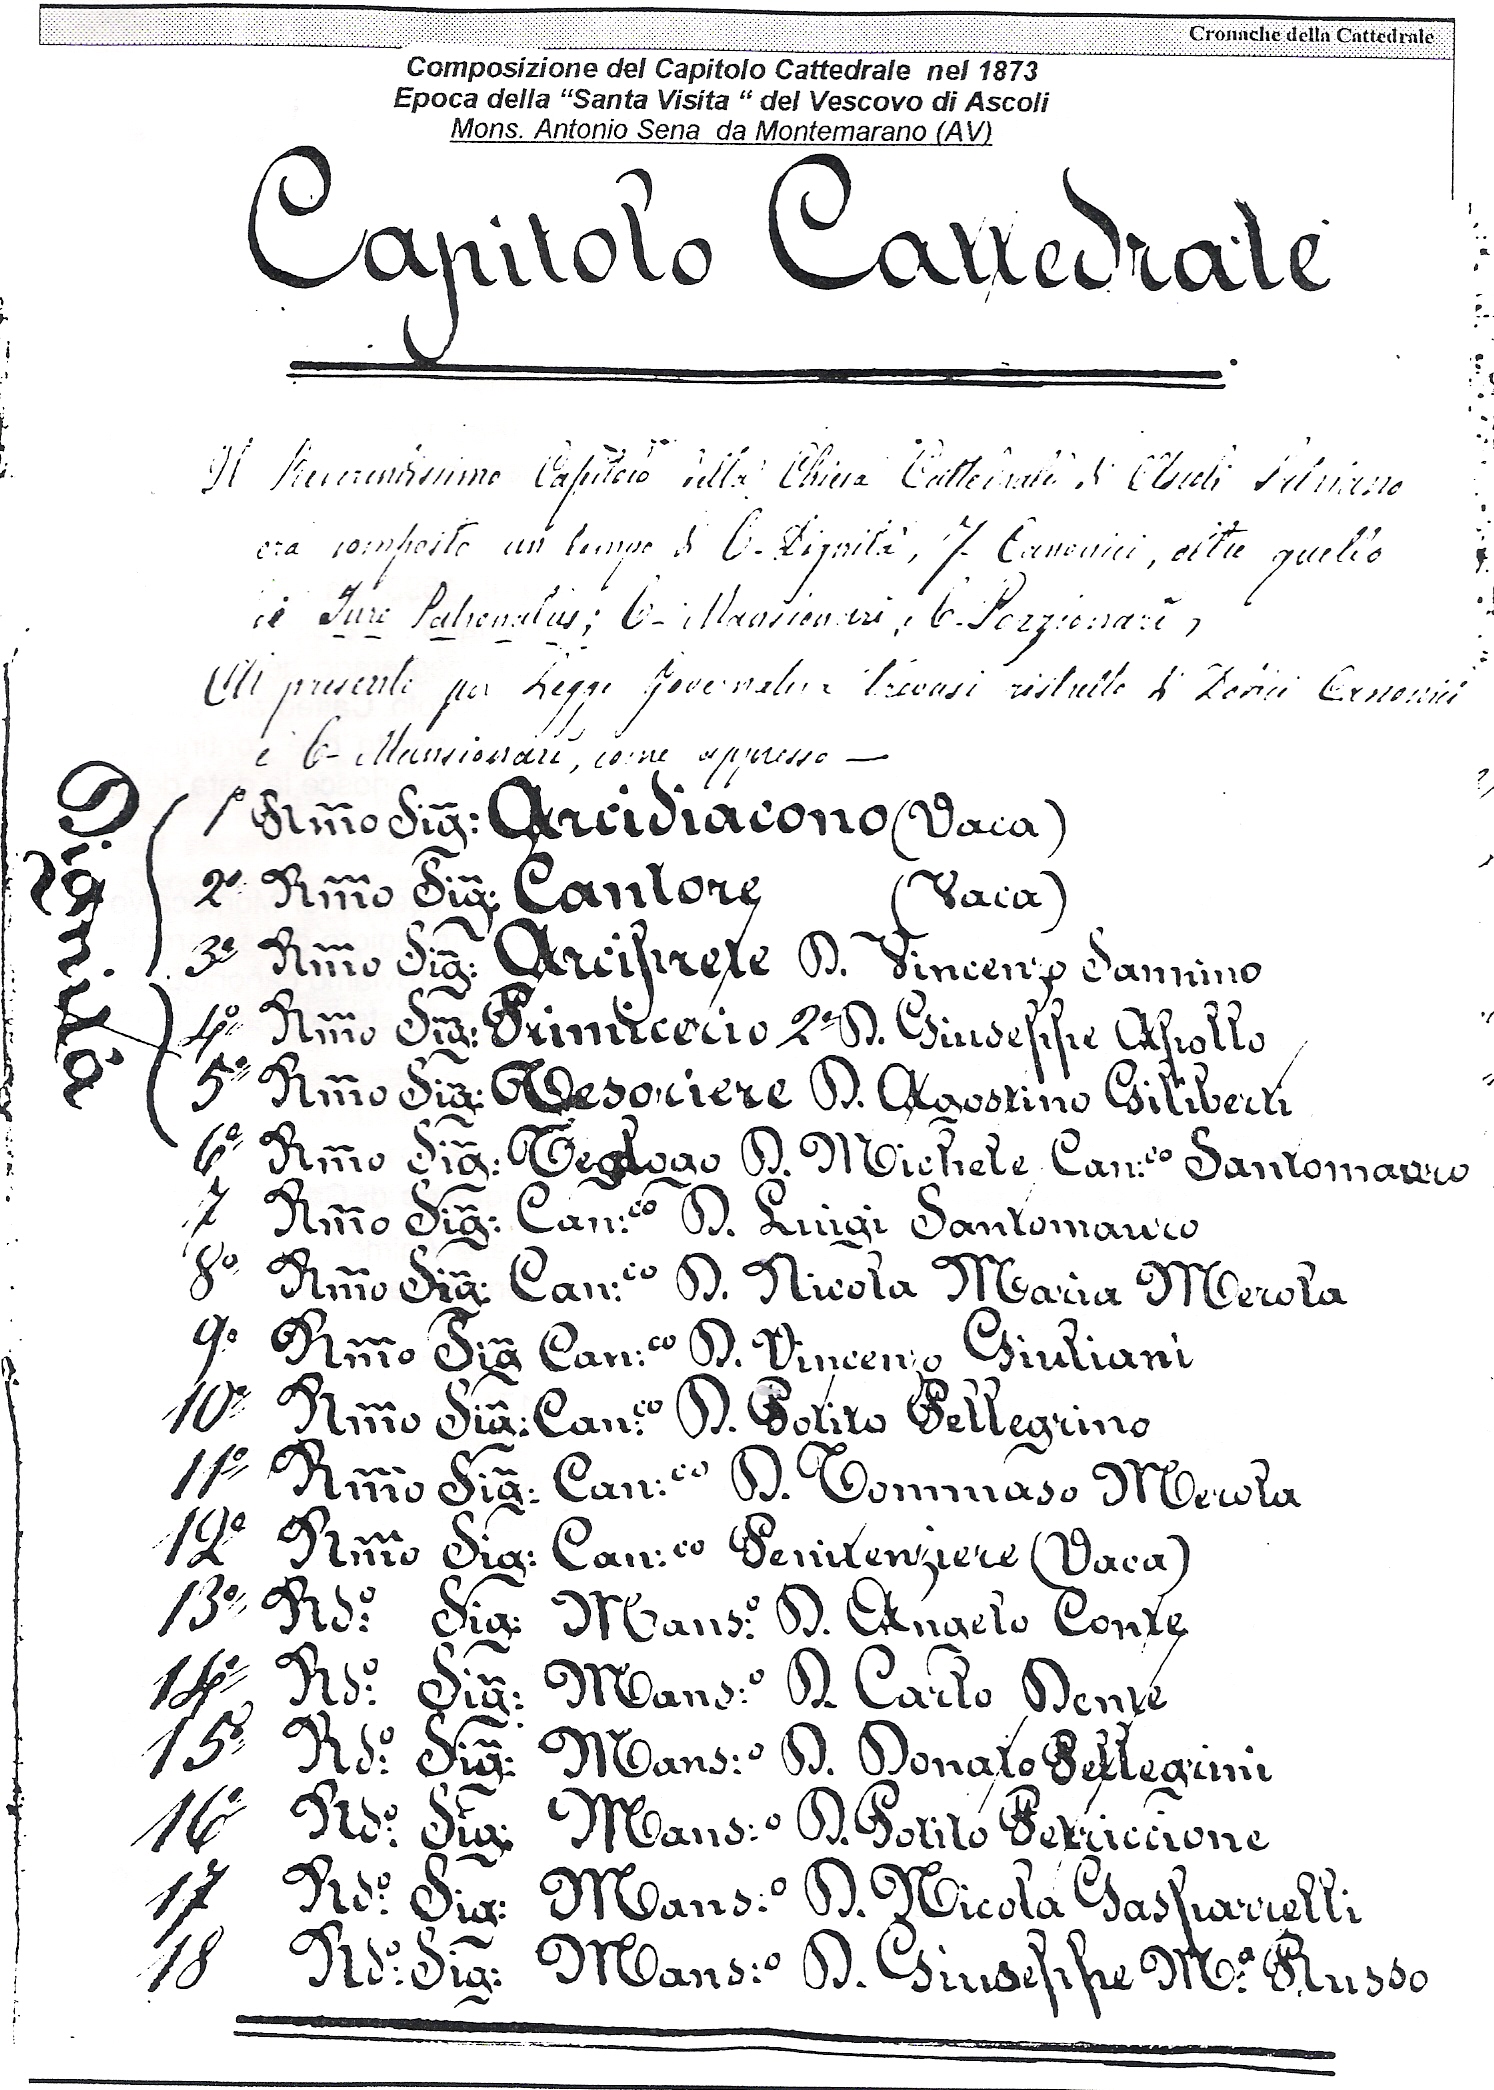 Cronache della Cattedrale
Composizione del Capitolo Cattedrale nel 1873
Epoca della “Santa Visita “ del Vescovo di Ascoli
Mons. Antonio Sena da Montemarano (AV)
Capitolo Cattedrale
Il Reverendissimo Capitolo della Chiesa Cattedrale di Ascoli Satriano
era composto un tempo di 6- Dignità, 7- Canonici, oltre quello
di Jure Patronatus; 6- Mansionari, 6- Porzionari,
Al presente per Legge Governativa trovasi ristretto di Dodici Canonici
e 6- Mansionari, come appresso —
Dignità
1º Rm̃o Sig̃: Arcidiacono (Vaca)
2º Rm̃o Sig̃: Cantore (Vaca)
3º Rm̃o Sig̃: Arciprete D. Vincenzo Sannino
4º Rm̃o Sig̃: Primicerio 2º D. Giuseppe Apollo
5º Rm̃o Sig̃: Tesoriere D. Agostino Giliberti
6º Rm̃o Sig̃: Teologo D. Michele Can:co Santomauro
7 Rm̃o Sig̃: Can:co D. Luigi Santomauro
8º Rm̃o Sig̃: Can:co D. Nicola Maria Merola
9º Rm̃o Sig̃ Can:co D. Vincenzo Giuliani
10º Rm̃o Sig̃: Can:co D. Potito Pellegrino
11º Rm̃o Sig̃: Can:co D. Tommaso Merola
12º Rm̃o Sig̃: Can:co Penitenziere (Vaca)
13º Rdº: Sig̃: Mans:º D. Angelo Conte
14º Rdº: Sig̃: Mans:º D. Carlo Dente
15º Rdº: Sig̃: Mans:º D. Donato Pellegrini
16º Rdº: Sig̃: Mans:º D. Potito Perriccione
17 Rdº: Sig̃: Mans:º D. Nicola Gasparrelli
18 Rdº: Sig̃: Mans:º D. Giuseppe M:a Russo